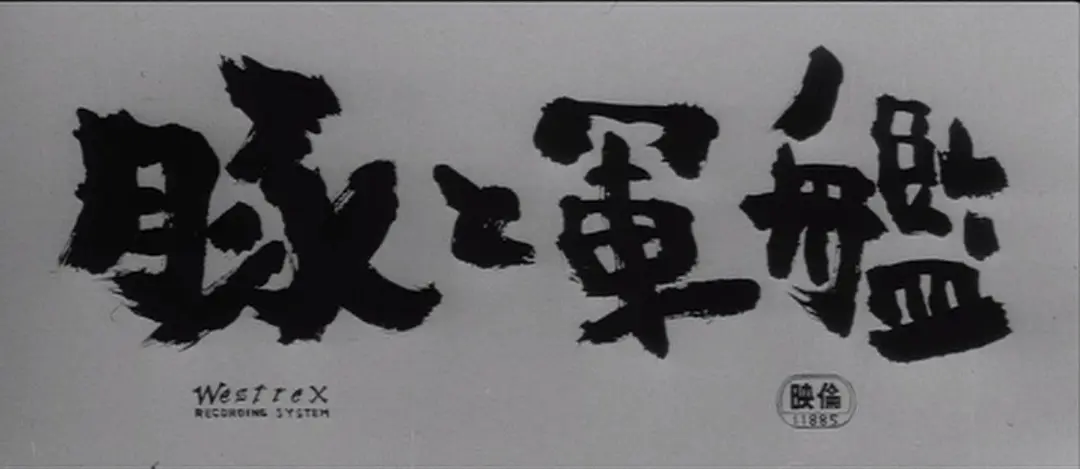 豚と軍艦
Westrex
RECORDING SYSTEM
映倫
11885